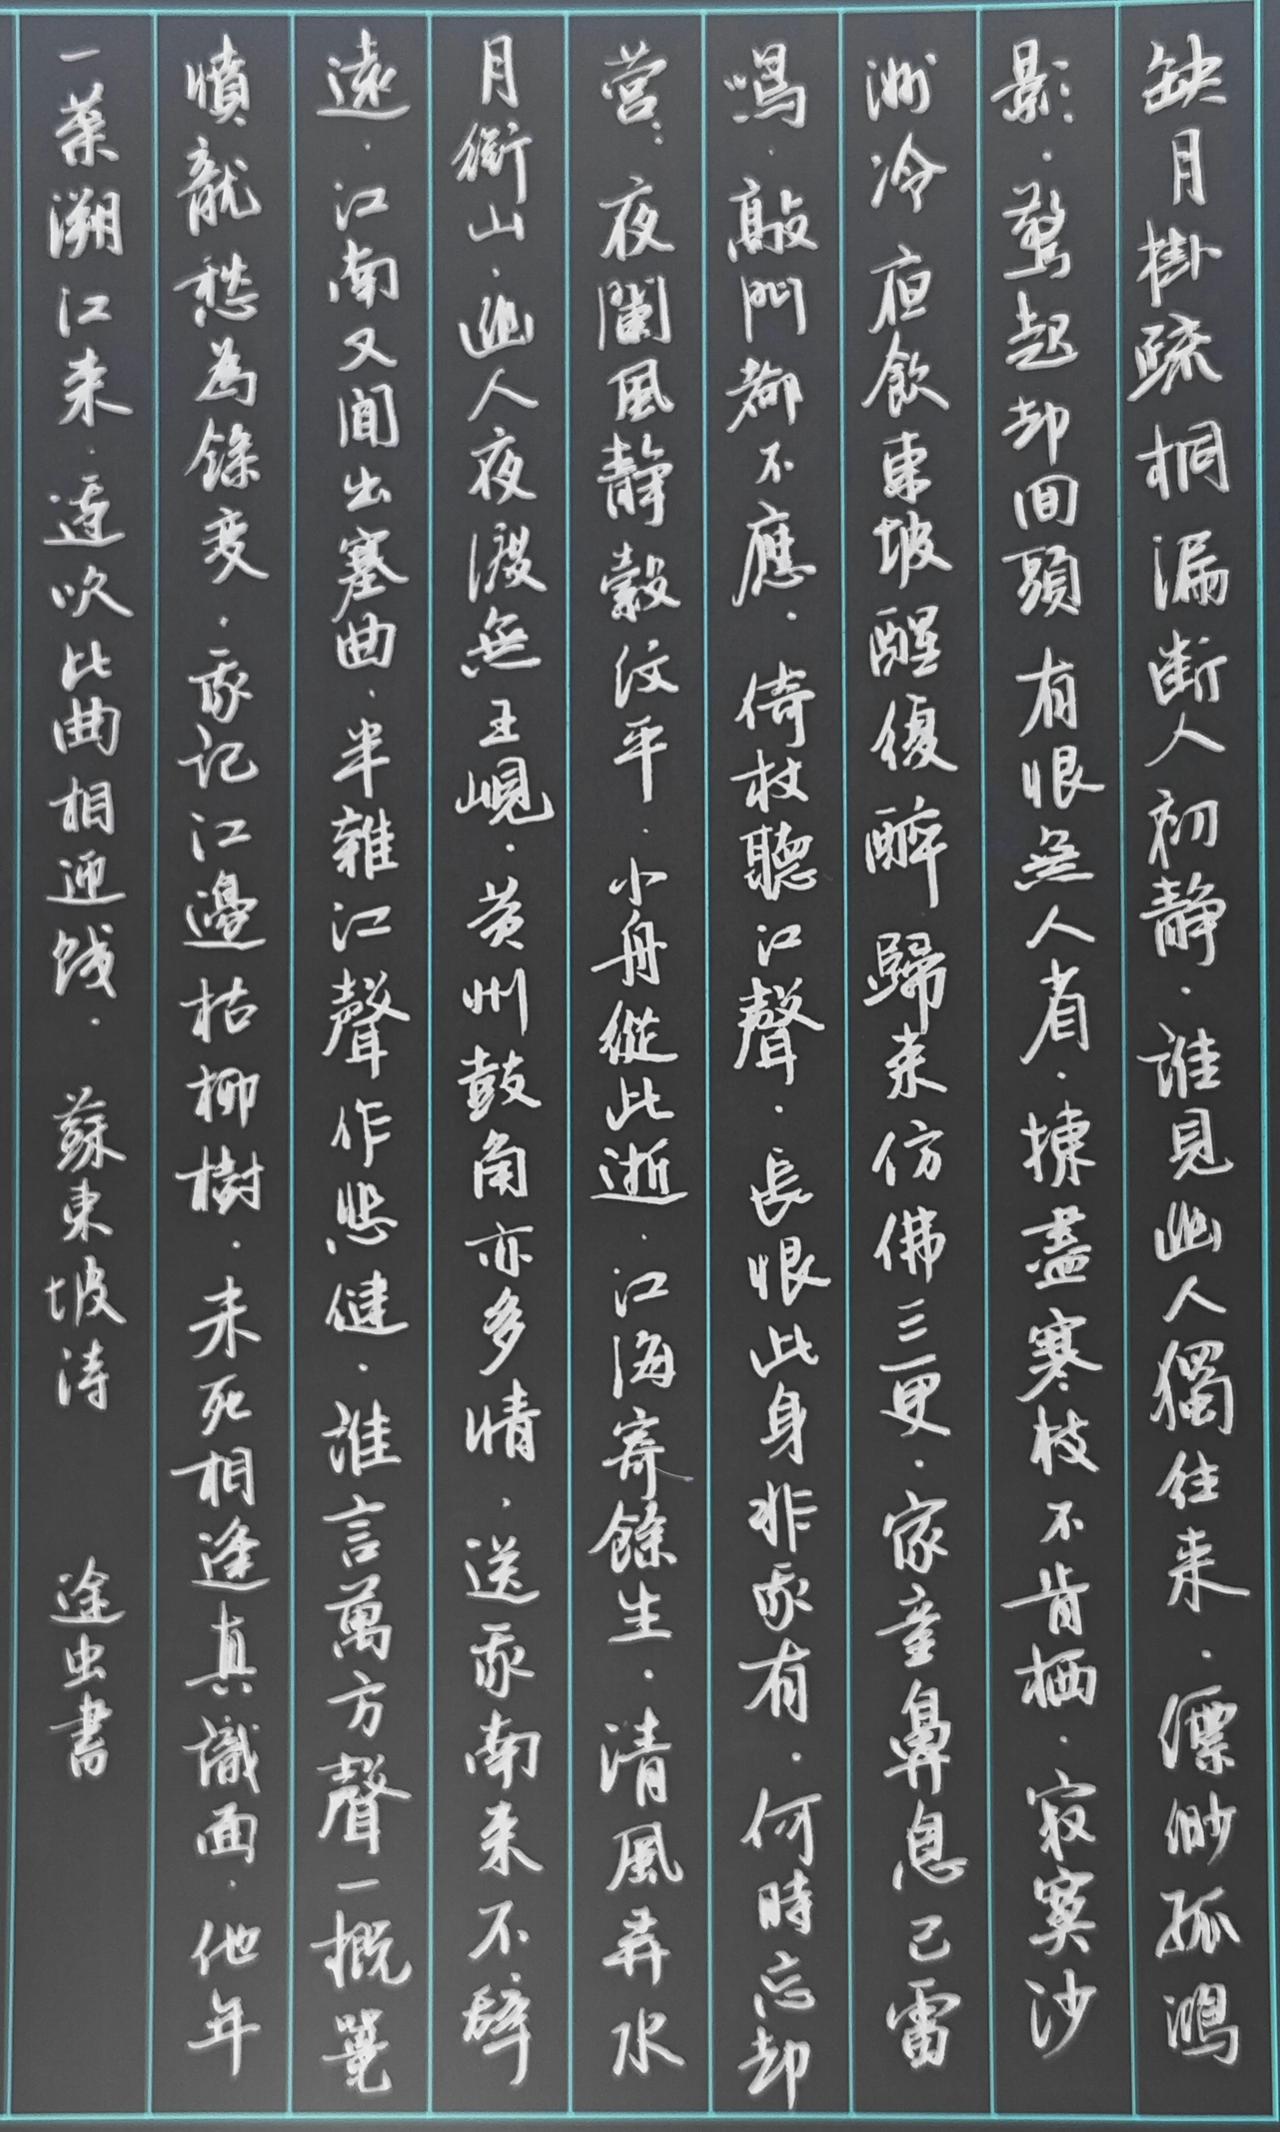 缺月掛疏桐漏断人初静．谁見幽人獨往来．縹緲孤鴻
影．驚起却回頭有恨無人省．揀盡寒枝不肯栖．寂寞沙
洲冷夜飲東坡醒復醉歸来仿佛三更．家童鼻息已雷
鳴．敲門都不應．倚杖聽江聲．長恨此身非我有．何時忘却
营營夜闌風静縠纹平．小舟從此逝．江海寄餘生．清風弄水
月銜山．幽人夜渡無王峴．黄州鼓角亦多情．送我南来不辞
遠．江南又聞出塞曲．半雜江聲作悲健．誰言萬方聲一概鼍
憤龍愁為餘变．我記江邊枯柳樹．未死相逢真識面．他年
一葉溯江来．還吹此曲相迎饯．蘇東坡诗 途虫書